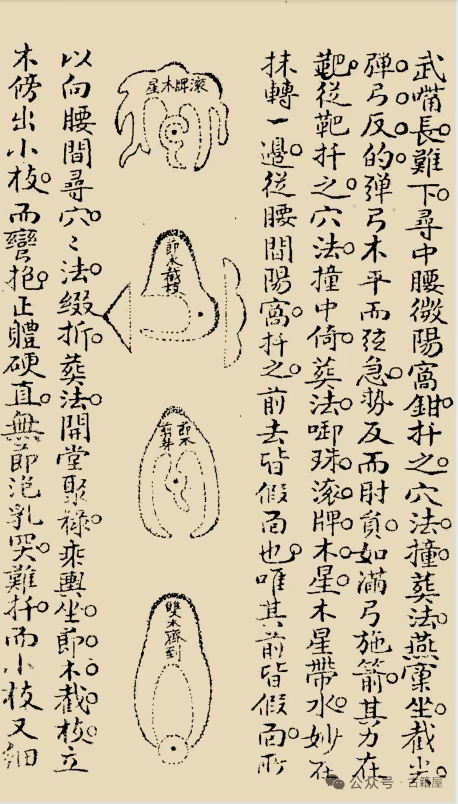 武嘴長難下尋中腰微陽窩鉗扦之穴法撞葬法燕窠坐截尖
弹弓反的弹弓木平而弦急勢反而肘貟如滿弓施箭其力在
靶從靶扦之穴法撞中倚葬法啣珠滚牌木星木星帶水妙在
抹轉一邊從腰間陽窩扦之前去皆假面也唯其前皆假面所
滚牌木星
節木截枝
節木
雙木齊到
以向腰間尋穴〻法缀折葬法開堂聚禄乘輿坐節木截枝立
木傍出小枝而彎抱正體硬直無節泡乳突難扦而小枝又細
公众号 · 古籍屋